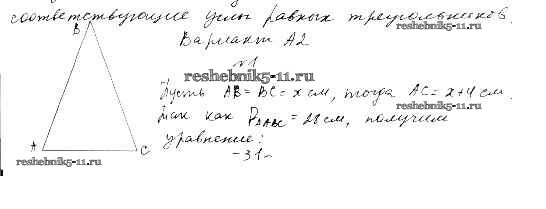 соответствующие углы равных треугольников.
B
Вариант А2
reshebnik5-11.ru
№1
reshebnik5-11.ru
Пусть AB = BC = x см, тогда AC = x+4 см.
reshebnik5-11.ru
Так как P△ABC = 28 см, получим
уравнение:
A
C
reshebnik5-11.ru
-31-